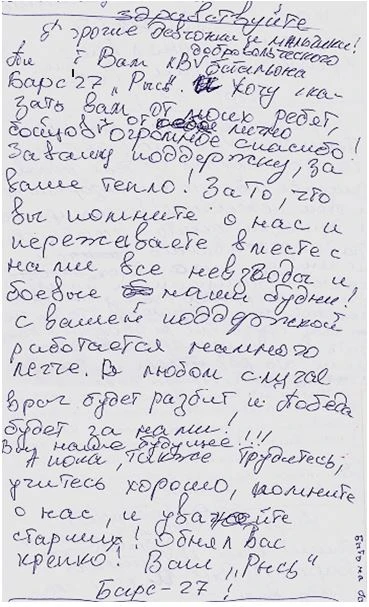 здравствуйте
Дорогие девчонки и мальчики!
Вам КВ добровольческого
батальона
Барс-27 „Рысь". Хочу ска-
зать вам от моих ребят,
бойцов и от себя лично
огромное спасибо!
За вашу поддержку, за
ваше тепло! За то, что
вы помните о нас и
переживаете вместе с
нами все невзводы и
боевые наши будни!
с вашей поддержкой
работается намного
легче. В любом случае
враг будет разбит и Победа
будет за нами!
Вы наше будущее!!!
А пока, также трудитесь,
учитесь хорошо, помните
о нас, и уважайте
старших! Обнял Вас
крепко! Ваш „Рысь"
Барс-27!